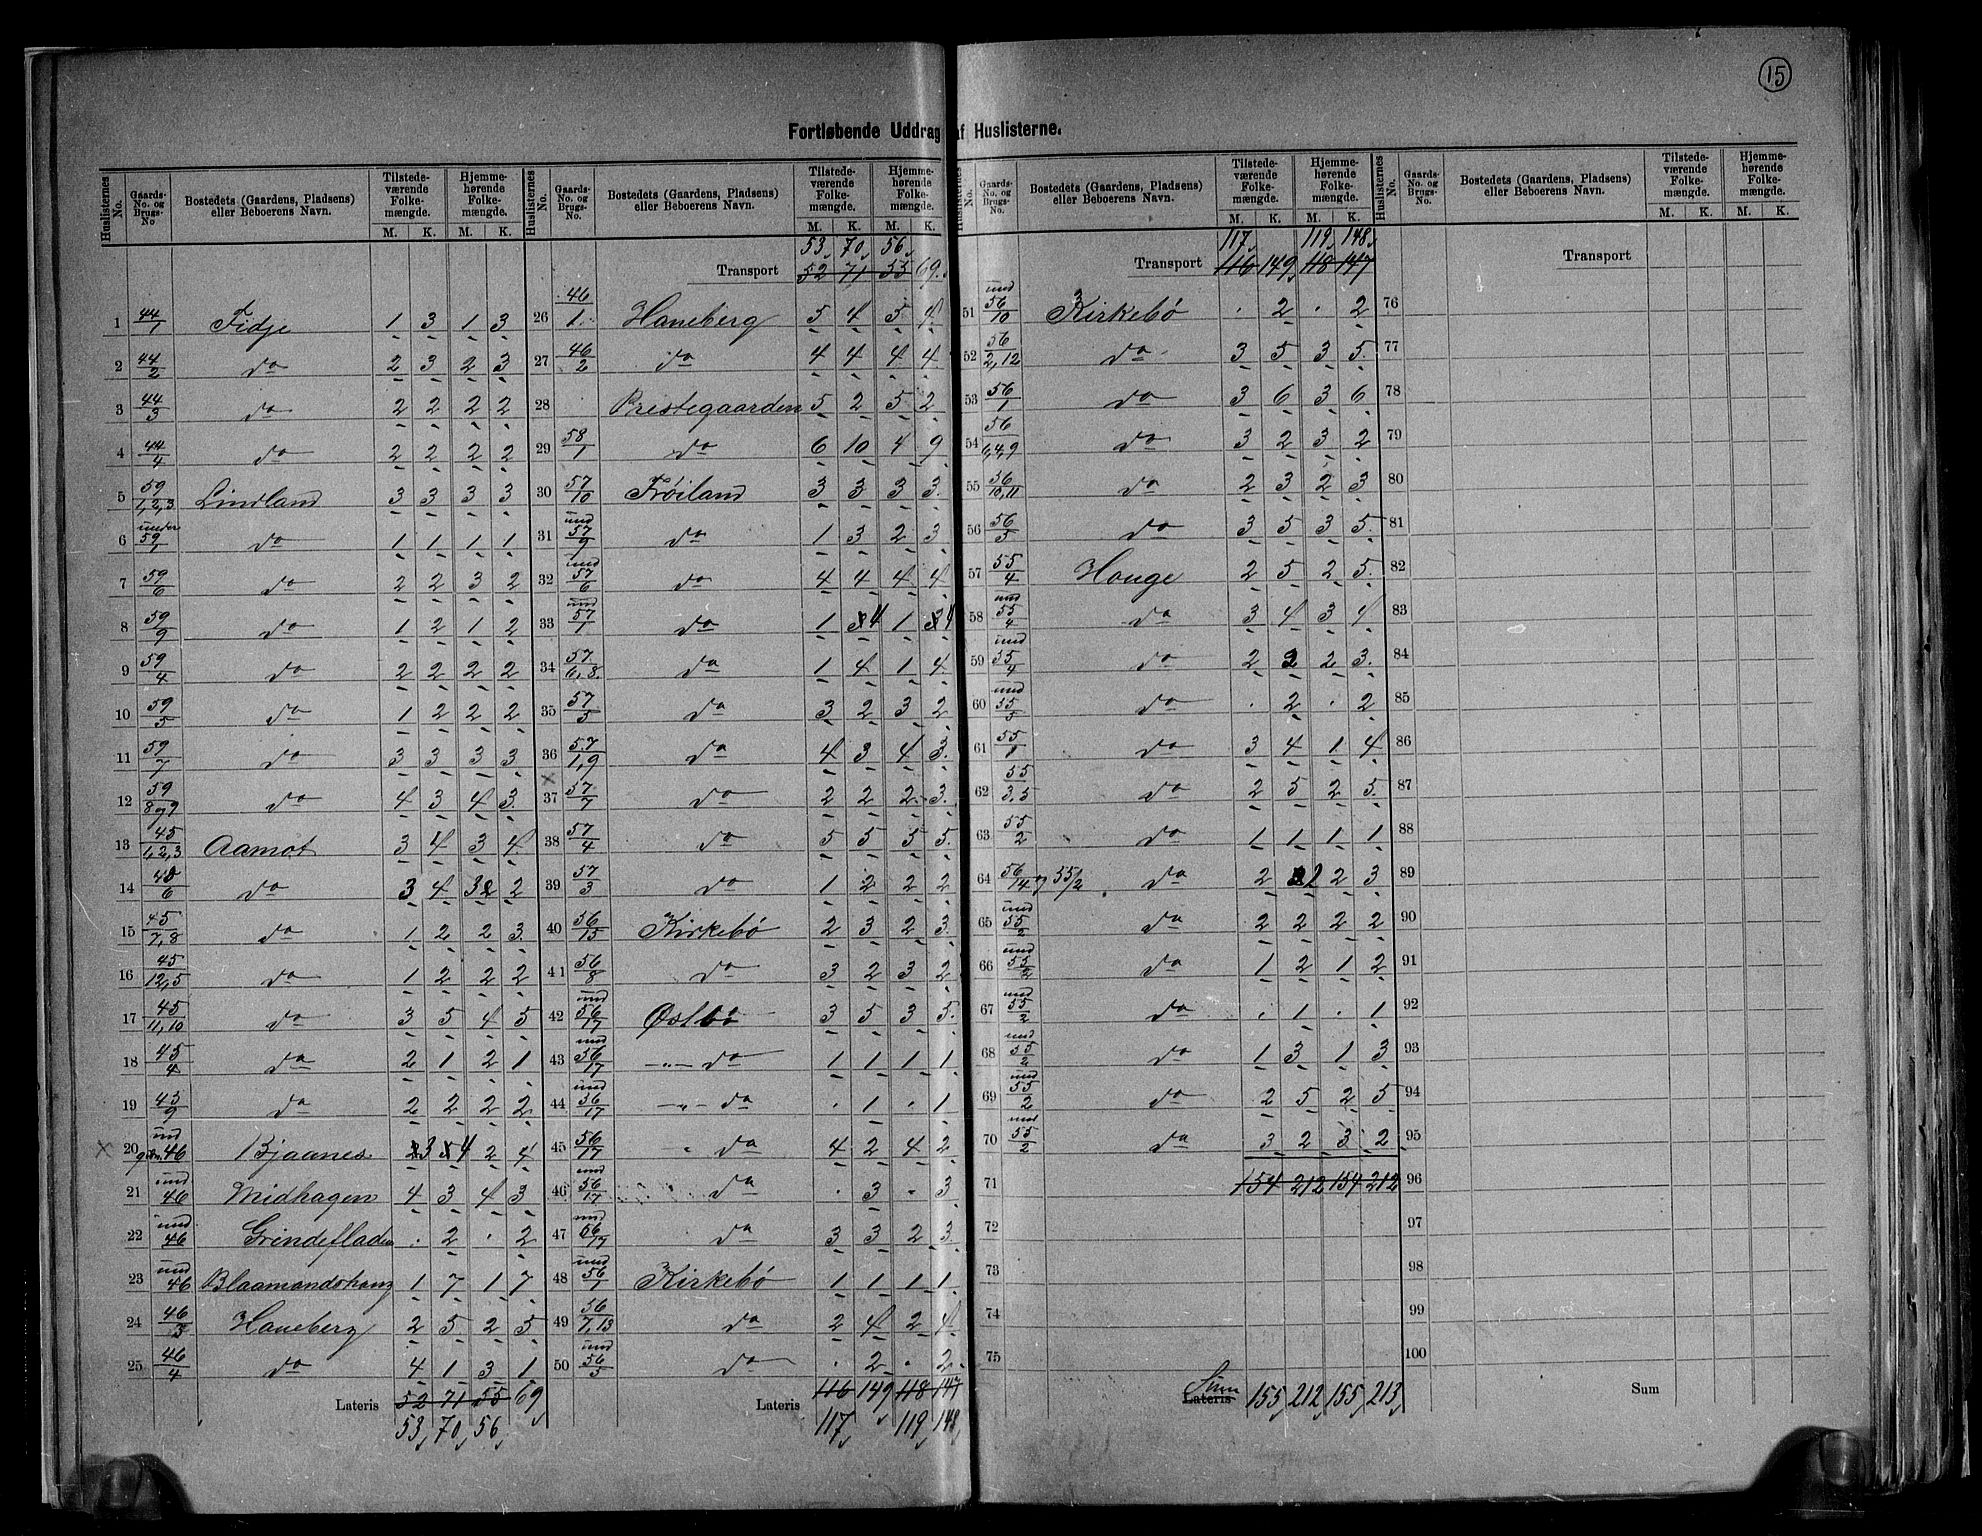 15
Fortløbende Uddrag af Huslisterne.
Huslisternes No. | Gaards-No. og Brugs-No | Bostedets (Gaardens, Pladsens) eller Beboerens Navn. | Tilstedeværende Folkemængde. M. K. | Hjemmehørende Folkemængde. M. K.
1 44/1 Fidje 1 3 1 3
2 44/2 do 2 3 2 3
3 44/3 do 2 2 2 2
4 44/4 do 2 2 2 2
5 59/1,2,3 Lindland 3 3 3 3
6 under 59/1 do 1 1 1 1
7 59/6 do 2 2 3 2
8 59/9 do 1 2 1 2
9 59/4 do 2 2 2 2
10 59/5 do 1 2 2 2
11 59/7 do 3 3 3 3
12 59/8og9 do 4 3 4 3
13 45/1,2,3 Aamot 3 4 3 4
14 45/6 do 3 4 3 2
15 45/7,8 do 1 2 2 3
16 45/12,5 do 1 2 2 2
17 45/11,10 do 3 5 4 5
18 45/4 do 2 1 2 1
19 45/9 do 2 2 2 2
20 und 46 Bjaanes 3 4 2 4
21 und 46 Midhagen 4 3 4 3
22 und 46 Grindefladen . 2 . 2
23 und 46 Blaamandshaug 1 7 1 7
24 46/3 Haneberg 2 5 2 5
25 46/4 do 4 1 3 1
Lateris 52 71 55 69
53 70 56
Huslisternes No. | Gaards-No. og Brugs-No. | Bostedets (Gaardens, Pladsens) eller Beboerens Navn. | Tilstedeværende Folkemængde. M. K. | Hjemmehørende Folkemængde. M. K.
53 70 56
Transport 52 71 55 69
26 46/1 Haneberg 5 4 5 4
27 46/2 do 4 4 4 4
28 Prestegaarden 5 2 5 2
29 58/1 do 6 10 4 9
30 57/10 Frøiland 3 3 3 3
31 und 57/9 do 1 3 2 3
32 und 57/6 do 4 4 4 4
33 und 57/1 do 1 4 1 4
34 57/6,8 do 1 4 1 4
35 57/5 do 3 2 3 2
36 57/1,9 do 4 3 4 3
37 57/7 do 2 2 2 3
38 57/4 do 5 5 5 5
39 57/3 do 1 2 2 2
40 56/15 Kirkebø 2 3 2 3
41 56/8 do 3 2 3 2
42 und 56/17 Østbø 3 5 3 5
43 und 56/17 do 1 1 1 1
44 und 56/17 do . 1 . 1
45 56/17 do 4 2 4 2
46 und 56/17 do . 3 . 3
47 und 56/17 do 3 3 2 3
48 und 56/1 Kirkebø 1 1 1 1
49 56/7,13 do 2 4 2 4
50 und 56/5 do . 2 . 2
Lateris 116 149 118 147
117 119 148
Huslisternes No. | Gaards-No. og Brugs-No. | Bostedets (Gaardens, Pladsens) eller Beboerens Navn. | Tilstedeværende Folkemængde. M. K. | Hjemmehørende Folkemængde. M. K.
117 119 148
Transport 116 149 118 147
51 und 56/10 Kirkebø . 2 . 2
52 56/2,12 do 3 5 3 5
53 56/1 do 3 6 3 6
54 56 do 3 2 3 2
55 56/10,11 do 2 3 2 3
56 56/5 do 3 5 3 5
57 55/4 Houge 2 5 2 5
58 und 55/4 do 3 4 3 4
59 und 55/4 do 2 3 2 3
60 und 55/5 do . 2 . 2
61 55/1 do 3 4 1 4
62 55/3.5 do 2 5 2 5
63 55/2 do 1 1 1 1
64 56/14 og 55/2 do 2 2 3
65 und 55/2 do 2 2 2 2
66 und 55/2 do 1 2 1 2
67 und 55/2 do . 1 . 1
68 und 55/2 do 1 3 1 3
69 und 55/2 do 2 5 2 5
70 und 55/2 do 3 2 3 2
71 154 212 154 212
72
73
74
75
Sum Lateris 155 212 155 213
Huslisternes No. | Gaards-No. og Brugs-No. | Bostedets (Gaardens, Pladsens) eller Beboerens Navn. | Tilstedeværende Folkemængde. M. K. | Hjemmehørende Folkemængde. M. K.
Transport
76
77
78
79
80
81
82
83
84
85
86
87
88
89
90
91
92
93
94
95
96
97
98
99
100
Sum